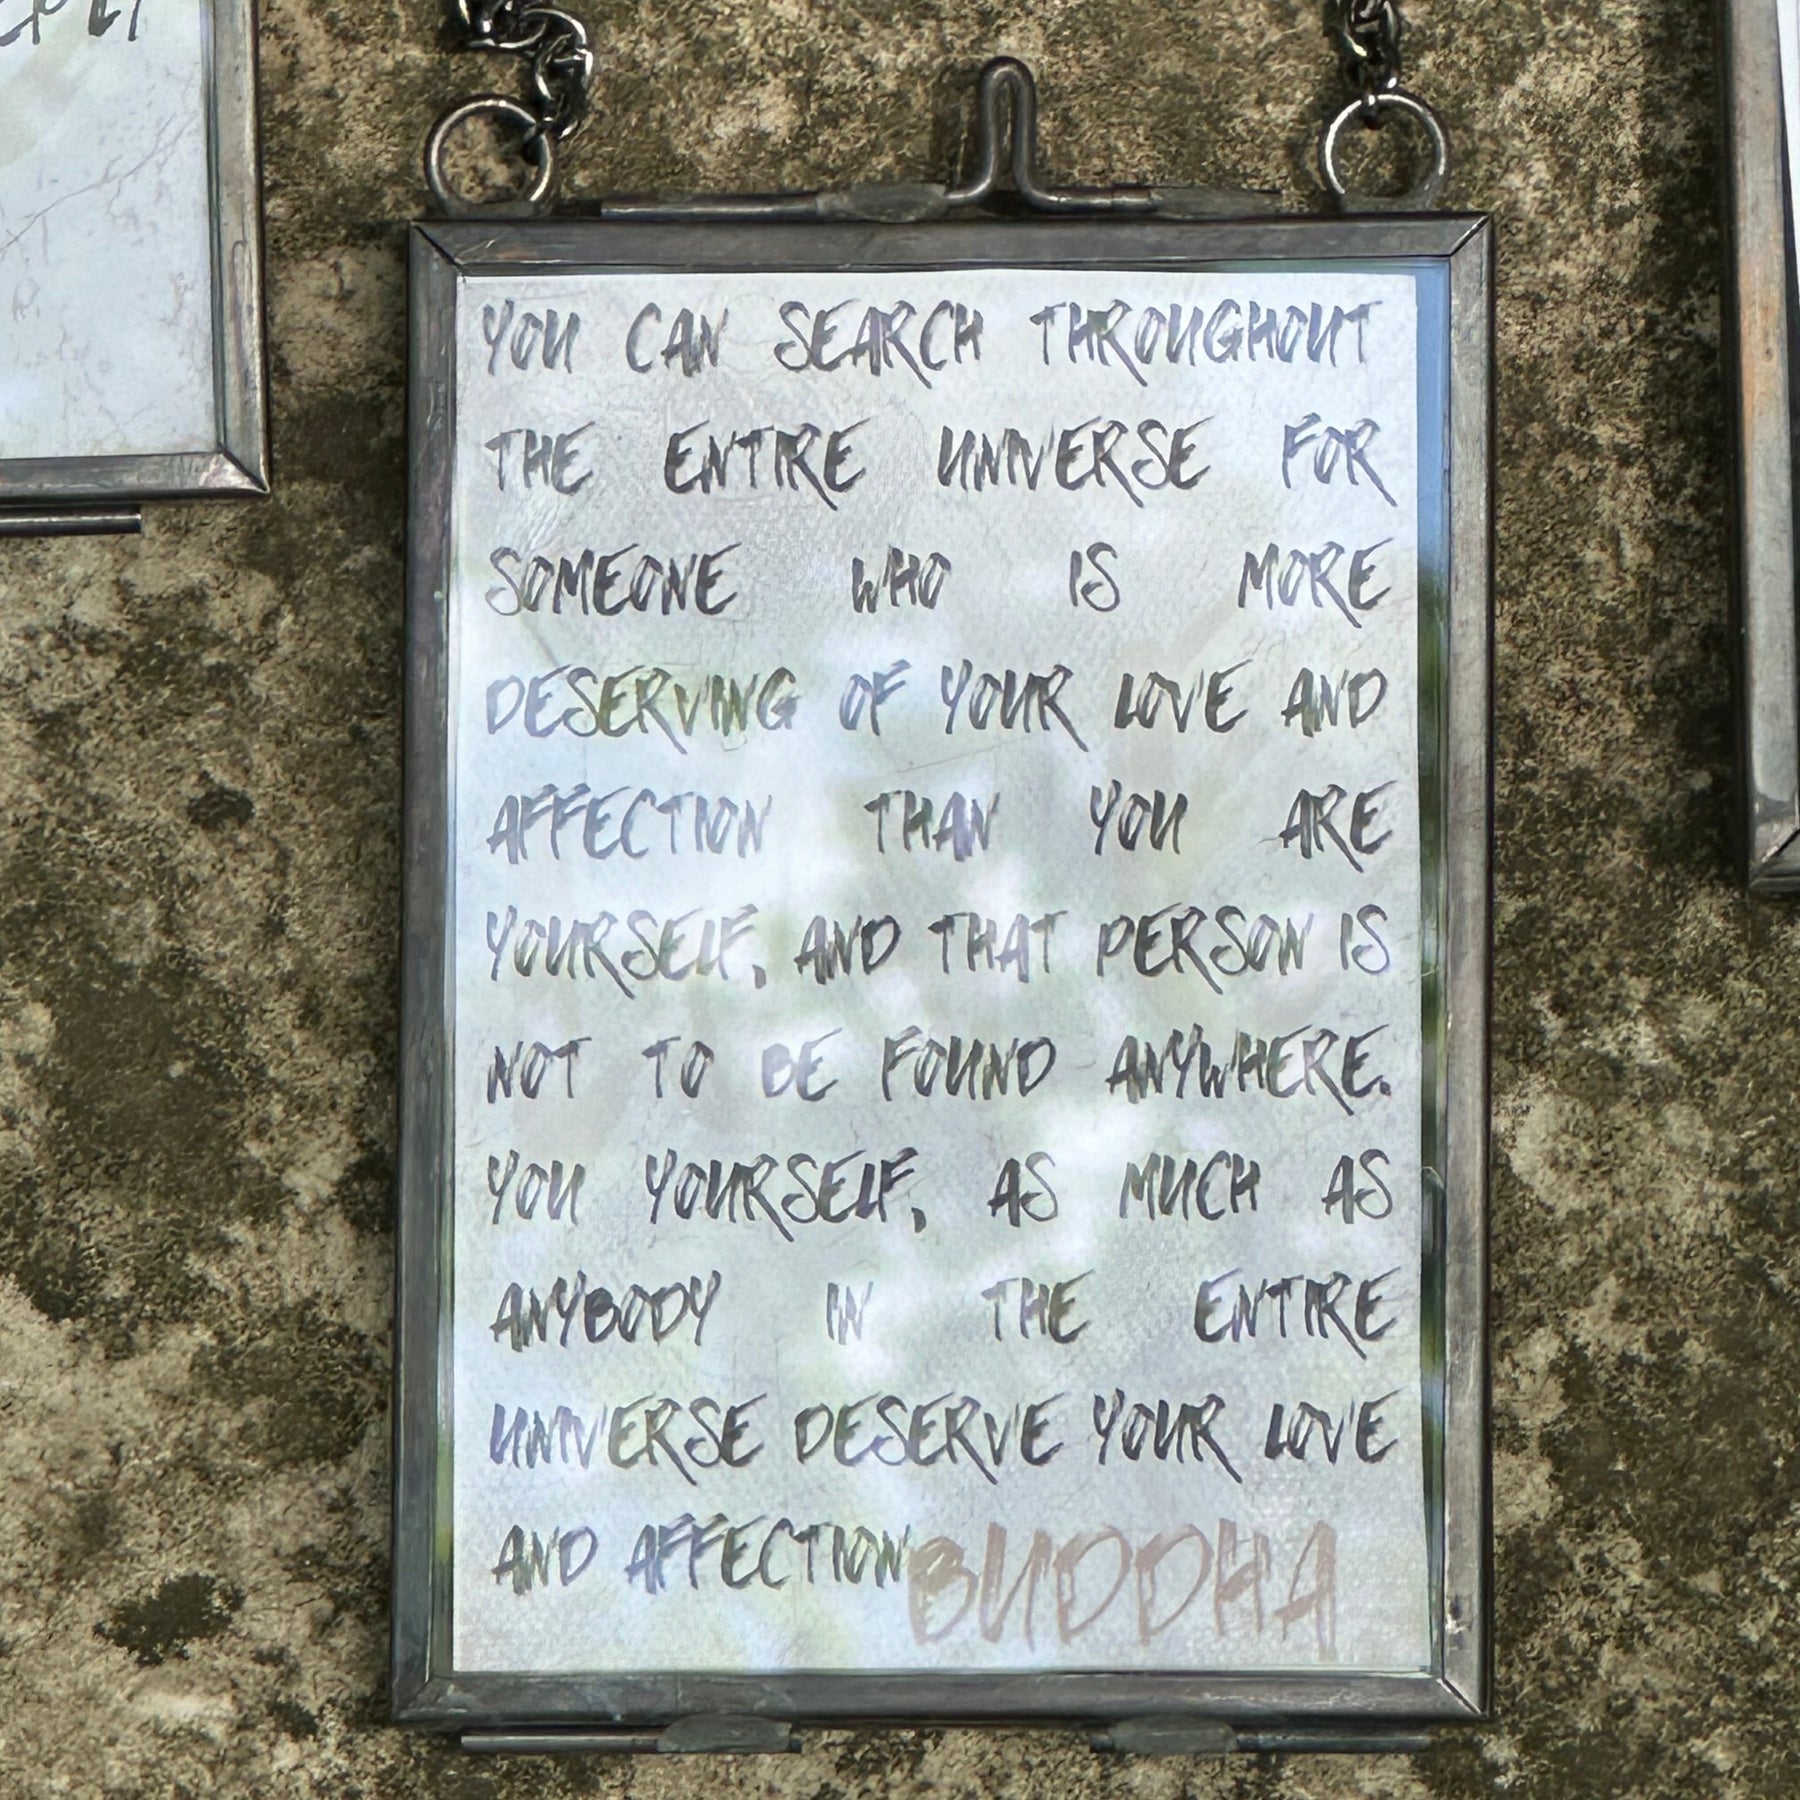 YOU CAN SEARCH THROUGHOUT
THE ENTIRE UNIVERSE FOR
SOMEONE WHO IS MORE
DESERVING OF YOUR LOVE AND
AFFECTION THAN YOU ARE
YOURSELF, AND THAT PERSON IS
NOT TO BE FOUND ANYWHERE.
YOU YOURSELF, AS MUCH AS
ANYBODY IN THE ENTIRE
UNIVERSE DESERVE YOUR LOVE
AND AFFECTION
BUDDHA